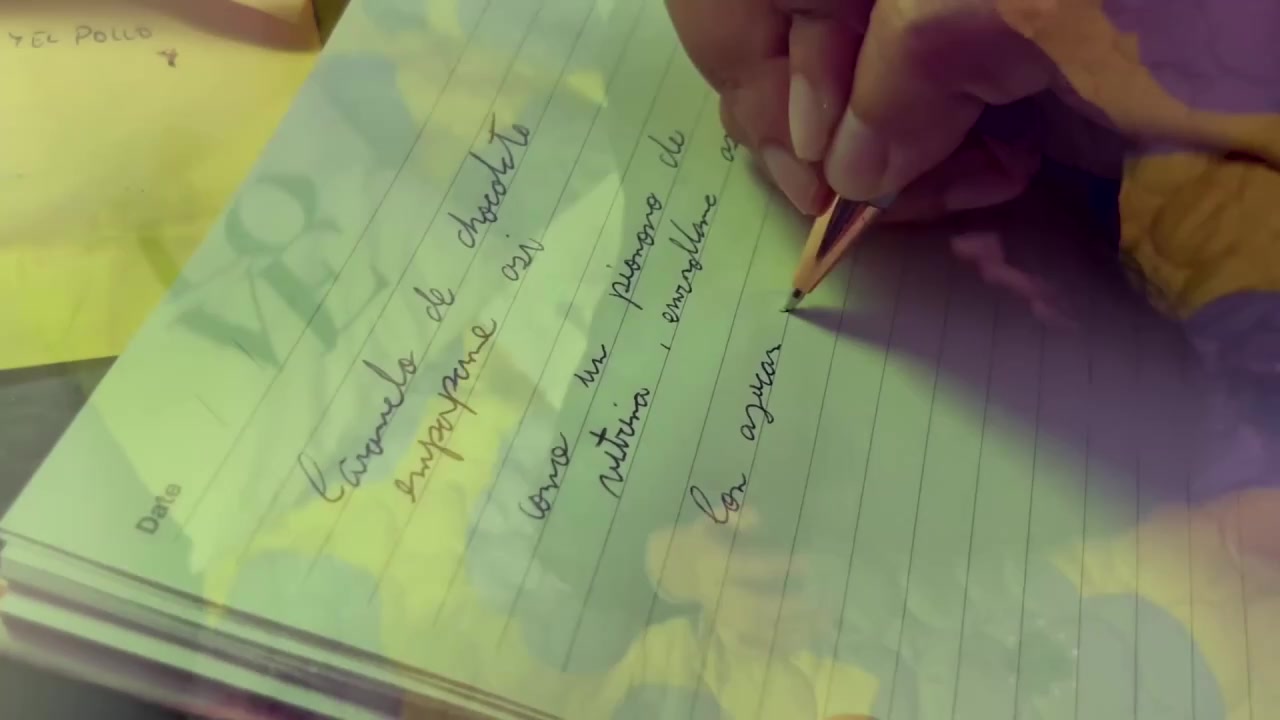 Y EL POLLO
Date
Caramelo de chocolate
empapame asi
como un pionono de
vitrina, enrollame as
Con azucar